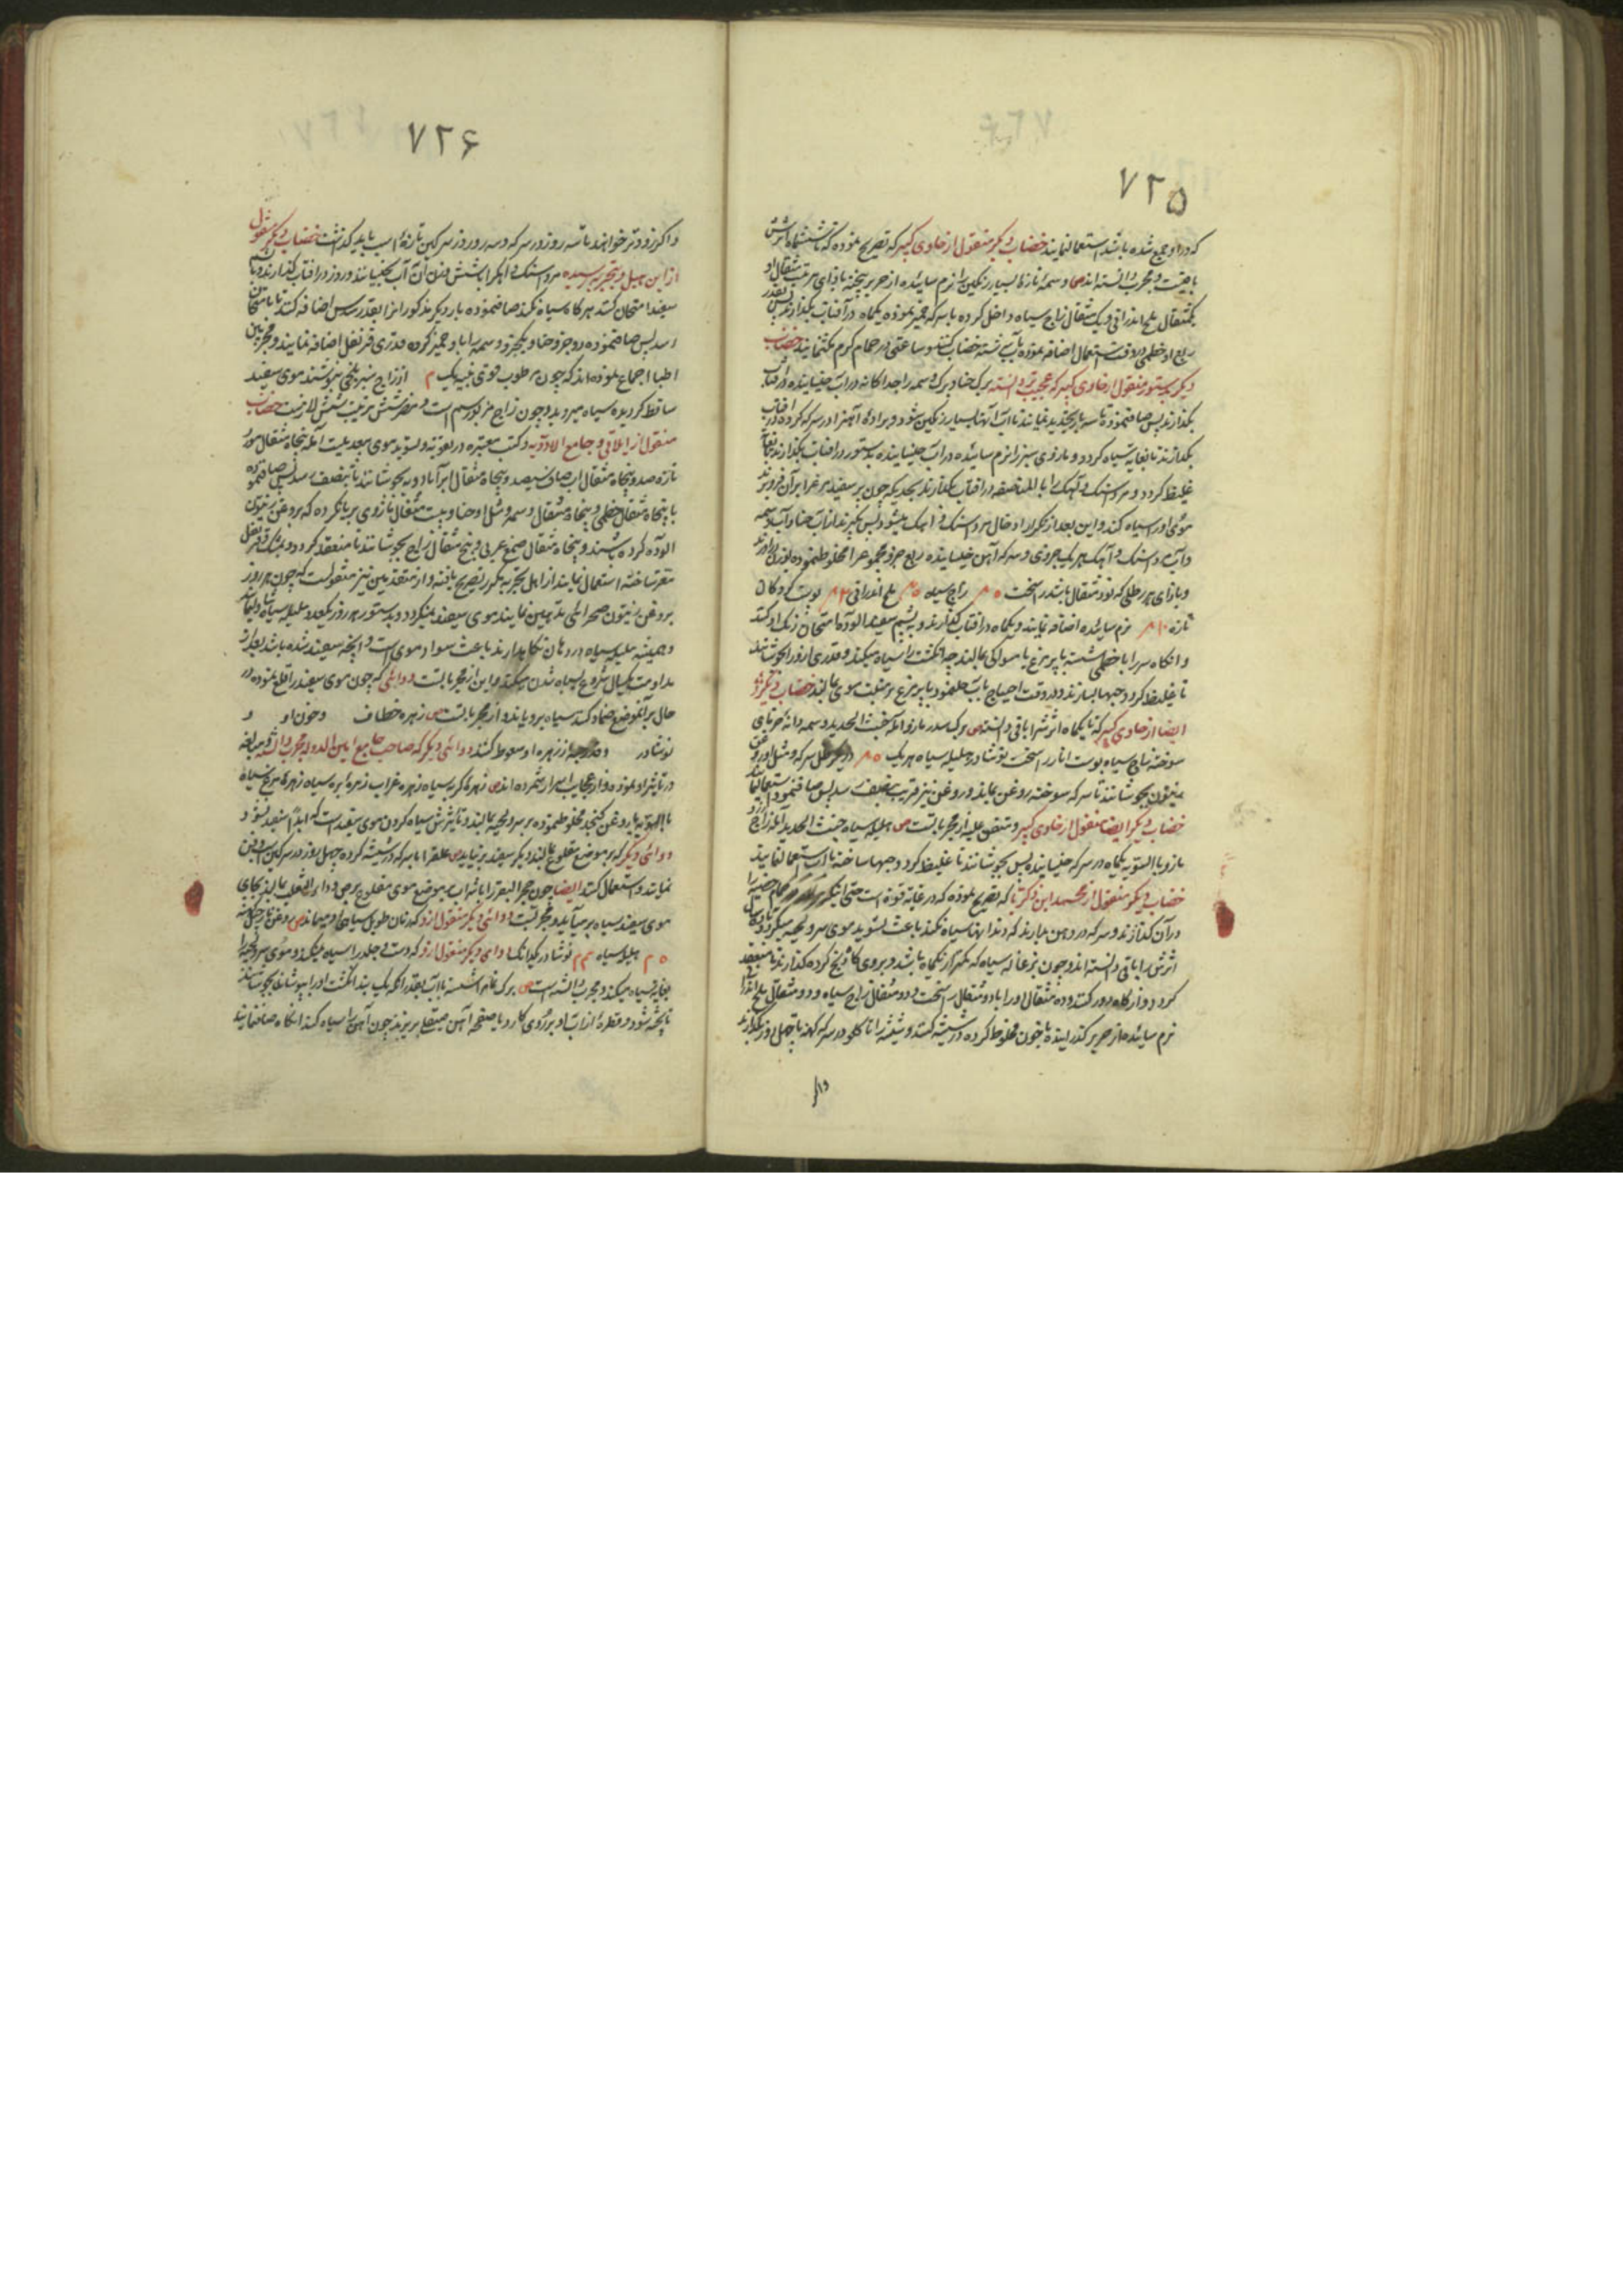 ۷۲۵
که در او جمع شده باشد استعمال نمایند خضاب دیگر منقول از حاوی کبیر که تصریح نموده که تا ششماه اثرش
باقیست و مجرب دانسته اند وسمه تازه بسیار رنگین را نرم سائیده از حریر بیخته
یکمثقال ملح اندرانی و یک مثقال زاج سیاه داخل کرده با سرکه خمیر نموده یکماه در آفتاب بگذارند پس بقدر
ربع او خطمی در وقت استعمال اضافه نموده بآب شسته خضاب کنند و ساعتی در حمام گرم مکث نمایند خضاب
دیگر بدستور منقول از حاوی کبیر که عجیب تر دانسته برگ حنا و برگ وسمه را جداگانه در آب خیسانیده در آفتاب
بگذارند پس صاف نموده تا سه بار تجدید نمایند تا آب آنها بسیار رنگین شود و براده آهن را در سرکه کرده در آفتاب
بگذارند تا بغایت سیاه گردد و مازوی سبز را نرم سائیده در آب خیسانیده بدستور در آفتاب بگذارند تا بغایت
غلیظ گردد و مرداسنک و آهک را بالمناصفه در آفتاب بگذارند بحدیکه چون پر سفید مرغ را بر آن فرو برند
موی او را سیاه کند و این بعد از تکرار ادخال مرداسنک و آهک میشود پس بگیرند از آب حنا و آب وسمه
و آب مرداسنک و آهک هر یک جزوی و سرکه آهن خیسانیده ربع جزو مجموع را مخلوط نموده
و بازای هر رطلی که نود مثقال باشد راسخت ۵ م زاج سیاه ۵ م ملح اندرانی ۲ م پوست گردکان
تازه ۱۰ م نرم سائیده اضافه نمایند و یکماه در آفتاب گذارند و به پشم سفید آلوده امتحان رنک او کنند
و انگاه سر را با خطمی شسته با پر مرغ یا مسواکی بمالند چه انگشت را سیاه میکند و قدری از او را بجوشانند
تا غلیظ گردد و حبها بسازند و در وقت احتیاج بآب حل نموده با پر مرغ بر منبت موی بمالند خضاب دیگر
ایضا از حاوی کبیر که تا یکماه اثرش را باقی دانسته برگ سدر مازو آمله خبث الحدید وسمه دانه خرمای
سوخته زاج سیاه پوست انار راسخت نوشادر هلیله سیاه هر یک ۵ م در رطل سرکه و مثل او روغن
زیتون بجوشانند تا سرکه سوخته روغن بماند و روغن نیز قریب بتخفیف رسد پس صاف نموده استعمال نمایند
خضاب دیگر ایضا منقول از حاوی کبیر و متفق علیه از مجربات است هلیله سیاه خبث الحدید آمله زاج
مازو بالسویه یکماه در سرکه خیسانیده پس بجوشانند تا غلیظ گردد و حبها ساخته با آب استعمال نمایند
خضاب دیگر منقول از محمد ابن زکریا که تصریح نموده که در غایة قوة است حتی اینکه
در آن گذارند و سرکه در دهن بدارند که دندانها سیاه نکند باعث تسوید موی سر و لحیه میگردد
اثرش را باقی دانسته اند و چون بزغاله سیاه که کمتر از یکماه باشد
گردد و از گاه دور کنند و ده مثقال او را با دو مثقال راسخت و دو مثقال زاج سیاه و دو مثقال ملح اندرانی
نرم سائیده از حریر گذرانیده با خون مخلوط کرده در شیشه کنند و شیشه را تا گلو در سرکه کهنه تا چهل روز بگذارند
و اگر
۷۲۶
و اگر زودتر خواهند تا سه روز در سرکه و سه روز در سرکین تازه اسب باید گذاشت خضاب دیگر منقول
از ابن هبل و بتجربه رسیده مرداسنک و آهک را با شش وزن آن آب بجنبانند و روز در آفتاب گذارند و با پشم
سفید امتحان کنند هرگاه سیاه نکند صاف نموده بار دیگر مذکور انرا بقدر سدس اضافه کنند تا با متحان
رسد پس صاف نموده دو جزو حنا و یکجزو وسمه را با او خمیر کرده قدری قرنفل اضافه نمایند و مجربین
اطبا اجماع نموده اند که چون مرطوب قوی بنیه یک م از زاج سبز بلخی بنوشند موی سفید
ساقط گردیده سیاه میروید و چون زاج مزبور سم است و مضر شش مرتبه شش لازمست خضاب
منقول از ایلاقی و جامع الادویه و کتب معتبره در تقویه و تسوید موی بیعدیلست آمله پنجاه مثقال مورد
تازه صد و پنجاه مثقال آب صاف سیصد و پنجاه مثقال ابرآبادویه بجوشانند تا بنصف رسد پس صاف نموده
با پنجاه مثقال خطمی و پنجاه مثقال وسمه و مثل او حنا و بیست مثقال مازوی بریان کرده که بروغن زیتون
آلوده کرده باشند و پنجاه مثقال صمغ عربی و پنج مثقال زاج بجوشانند تا منعقد گردد و بمشک و قرنفل
معطر ساخته استعمال نمایند از اهل تجربه مکرر تصریح یافته و از متقدمین نیز منقولست که چون هر روز
بروغن زیتون صحرائی تدهین نمایند موی سفید نمیگردد و بدستور هر روز یکعدد هلیله سیاه
و همیشه هلیله سیاه در دهان نگاهدارند باعث سواد موی است و آنچه سفید شده باشد بعد از
مداومت یکسال شروع بسیاه شدن میکند و این از مجربات است دوائی که چون موی سفید را قلع نموده در
حال بر آنموضع ضماد کنند سیاه برویاند و از مجربات است زهره خطاف و خون او و
نوشادر و قدر حبه از زهره او سعوط کنند دوائی دیگر که صاحب جامع امین الدوله مجرب دانسته و مبالغه
در تاثیر او نموده و از عجایب اسرار شمرده اند زهره گربه سیاه زهره غراب زهره بره سیاه زهره مرغ سیاه
بالسویه با روغن کنجد مخلوط نموده بر سر و لحیه بمالند و تاثیرش سیاه کردن موی سفید است که ابدا سفید نشود
دوائی دیگر که بر موضع مقلوع بمالند دیگر سفید برنیاید علق را با سرکه در شیشه کرده چهل روز در سرکین اسب دفن
نمایند و استعمال کنند ایضا چون حجر البقر را با شراب بر موضع موی مقلوع برص و داء الثعلب بمالند بجای
موی سفید سیاه بر میآید و مجربست دوائی دیگر منقول از او که زمان طویل سیاهی او میماند روغن نارجیل
۵ م هلیله سیاه ۲ م نوشادر یکدانک دوائی دیگر منقول از او که دست و جلد را سیاه نمیکند و موی سر و لحیه را
بغایة سیاه میکند و مجرب دانسته است برگ شسته با آب بقدر آنکه یک بند انگشت او را بپوشاند بجوشانند
تا پخته شود و قطره از آب او بر روی کارد یا صفحه آهن صیقلی بریزند چون آهن را سیاه کند انگاه صاف نمایند